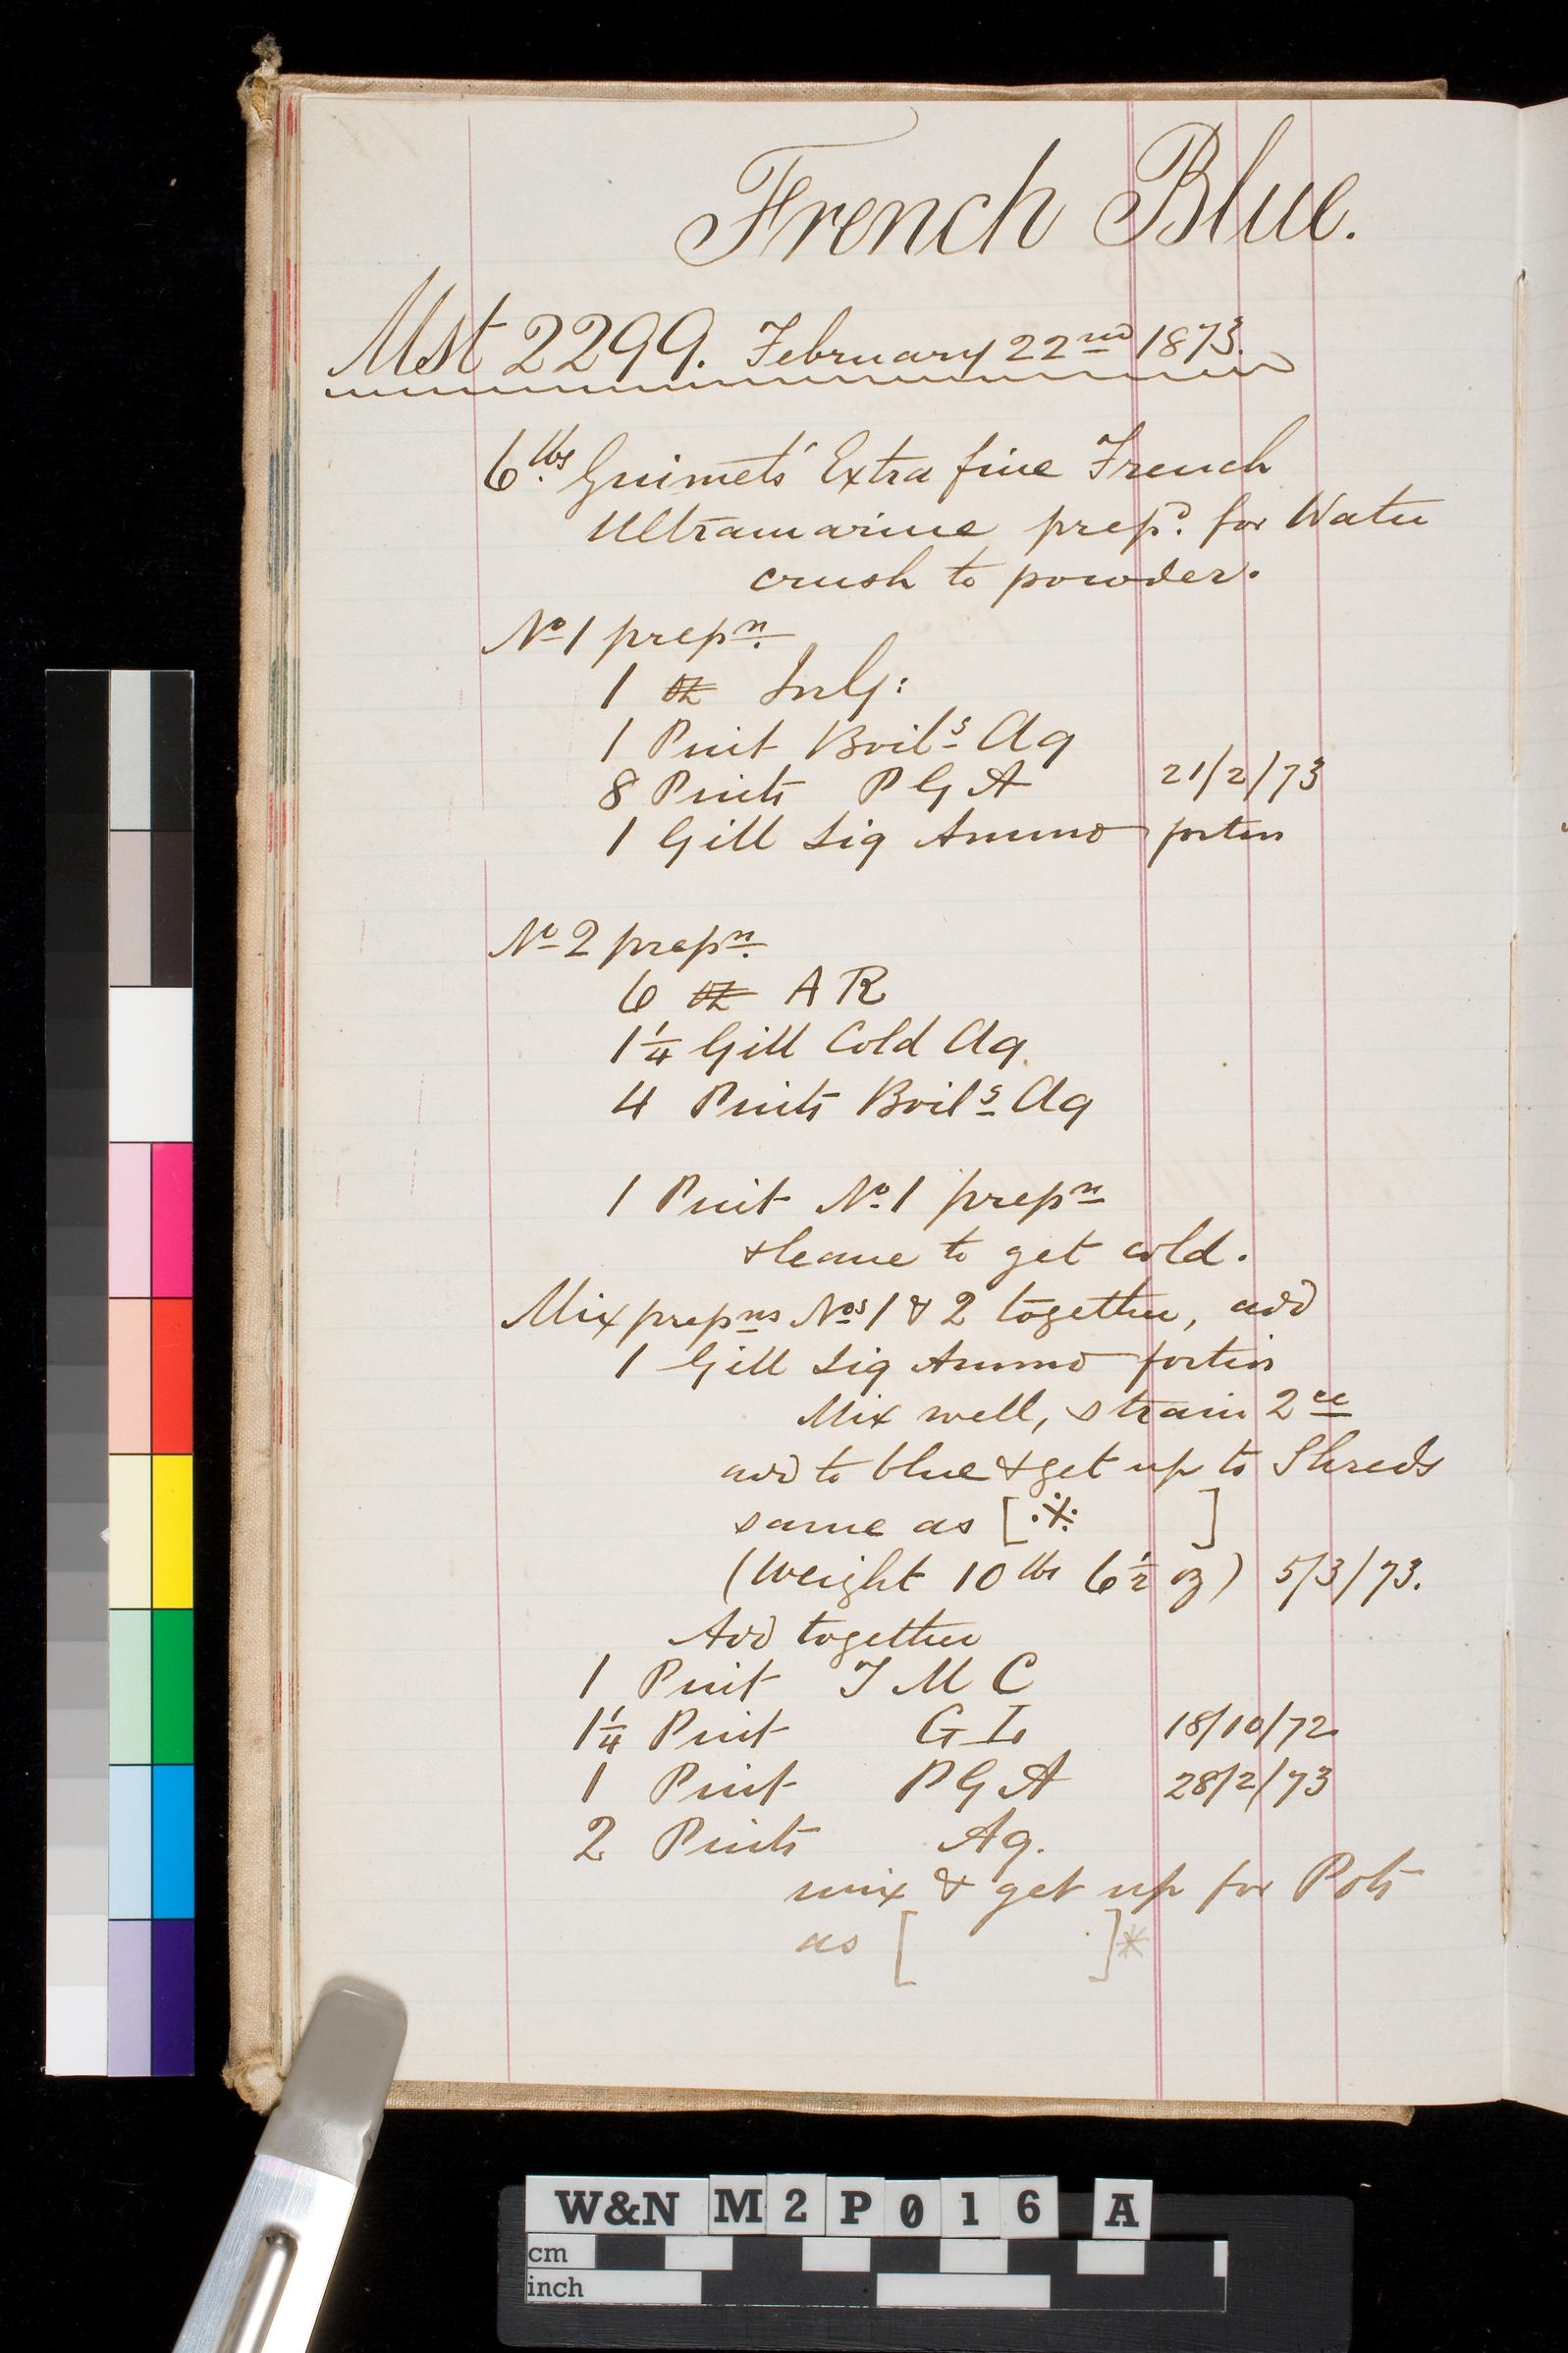 French Blue.
Mst 2299. February 22nd 1873.
6 lbs. Guimets' Extra fine French
Ultramarine prepd. for Water
crush to powder.
No 1 prepn.
1 oz
1 Pint Boilg Aq
8 Pints PGA 21/2/73
1 Gill Liq Ammo fortis
No 2 prepn.
6 oz AR
1 1/4 Gill Cold Aq.
4 Pints Boilg Aq
1 Pint No 1 prepn
& leave to get cold.
Mix prepns Nos 1 & 2 together, add
1 Gill Liq Ammo fortis
Mix well, strain 2ce
add to blue & get up to Shreds
same as [※ ]
(Weight 10 lbs 6 1/2 oz) 5/3/73.
Add together
1 Pint TMC
1 1/4 Pint GL 18/10/72
1 Pint PGA 28/2/73
2 Pints Aq.
mix & get up for Pots
as [ ]*
W&N M2P016 A
cm
inch